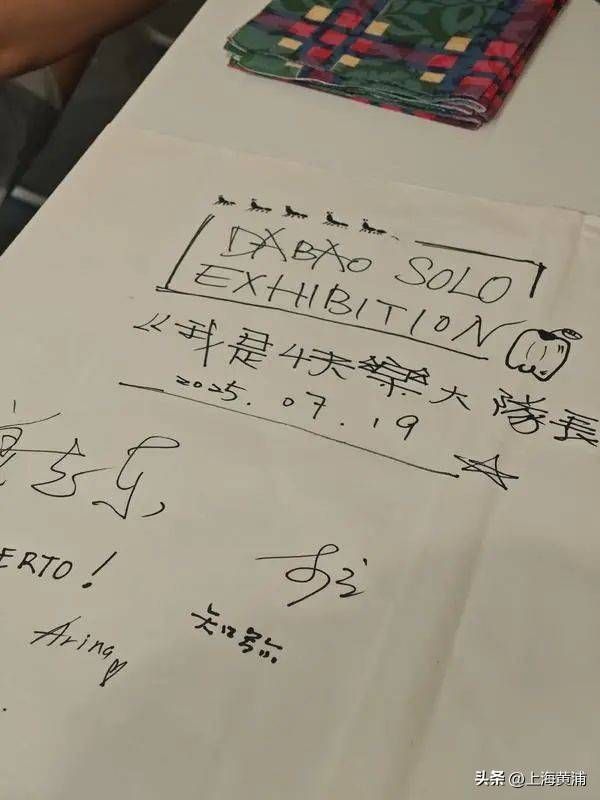 DABAO SOLO
EXHIBITION
《我是快樂大隊長
2025.07.19
ERTO!
Arina
头条 @上海黄浦